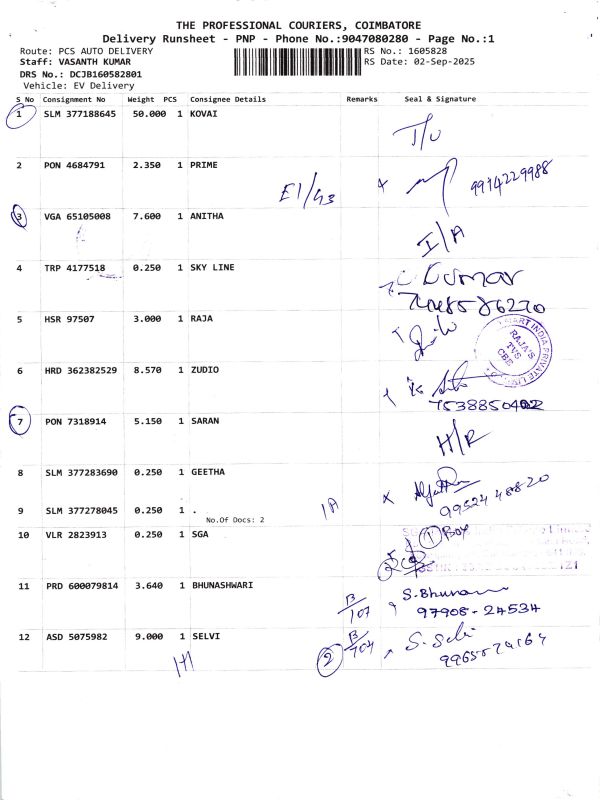 THE PROFESSIONAL COURIERS, COIMBATORE
Delivery Runsheet - PNP - Phone No.:9047080280 - Page No.:1
Route: PCS AUTO DELIVERY
RS No.: 1605828
Staff: VASANTH KUMAR
RS Date: 02-Sep-2025
DRS No.: DCJB160582801
Vehicle: EV Delivery
S No Consignment No Weight PCS Consignee Details Remarks Seal & Signature
1 SLM 377188645 50.000 1 KOVAI
2 PON 4684791 2.350 1 PRIME
E1/43 9994229988
3 VGA 65105008 7.600 1 ANITHA
I/A
4 TRP 4177518 0.250 1 SKY LINE
Kumar
5 HSR 97507 3.000 1 RAJA
RAJA'S
TVS
CBE
6 HRD 362382529 8.570 1 ZUDIO
7538850402
7 PON 7318914 5.150 1 SARAN
H/R
8 SLM 377283690 0.250 1 GEETHA
99524 48820
9 SLM 377278045 0.250 1 .
No.Of Docs: 2
1A
10 VLR 2823913 0.250 1 SGA
1 Box
11 PRD 600079814 3.640 1 BHUNASHWARI
B/107 97908-24534
12 ASD 5075982 9.000 1 SELVI
2 B/704 S. Selvi